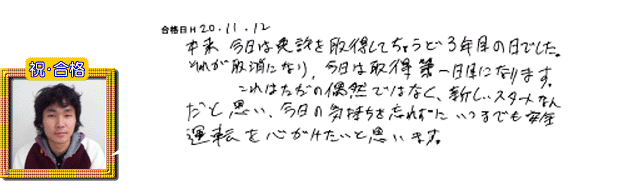 祝・合格
合格日 H20.11.12
本来 今日は免許を取得してちょうど3年目の日でした。
それが取消になり、今日は取得第一日目になります。
これはただの偶然ではなく、新しいスタートなん
だと思い、今日の気持ちを忘れずに いつまでも安全
運転を心がけたいと思います。